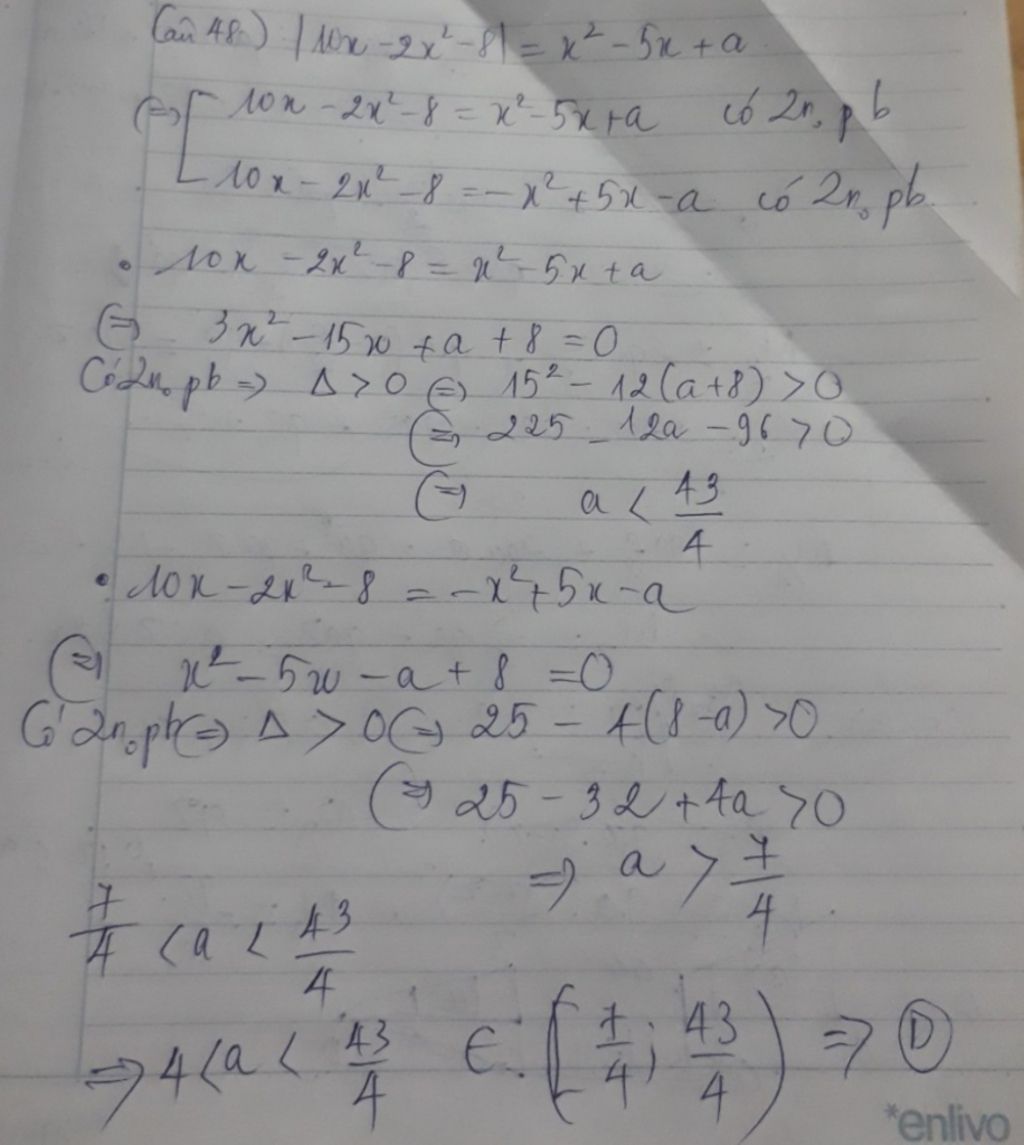 Câu 48.) |10x - 2x² - 8| = x² - 5x + a
(=> [ 10x - 2x² - 8 = x² - 5x + a có 2n₀ pb
10x - 2x² - 8 = -x² + 5x - a có 2n₀ pb.
• 10x - 2x² - 8 = x² - 5x + a
(=) 3x² - 15x + a + 8 = 0
Có 2n₀ pb => Δ > 0 (=) 15² - 12(a+8) > 0
(=) 225 - 12a - 96 > 0
(=) a < 43/4
• 10x - 2x² - 8 = -x² + 5x - a
(=) x² - 5x - a + 8 = 0
Có 2n₀ pb (=) Δ > 0 (=) 25 - 4(8-a) > 0
(=) 25 - 32 + 4a > 0
=> a > 7/4
7/4 < a < 43/4
=> 4 < a < 43/4 ∈ [7/4; 43/4) => Ⓓ
*enlivo